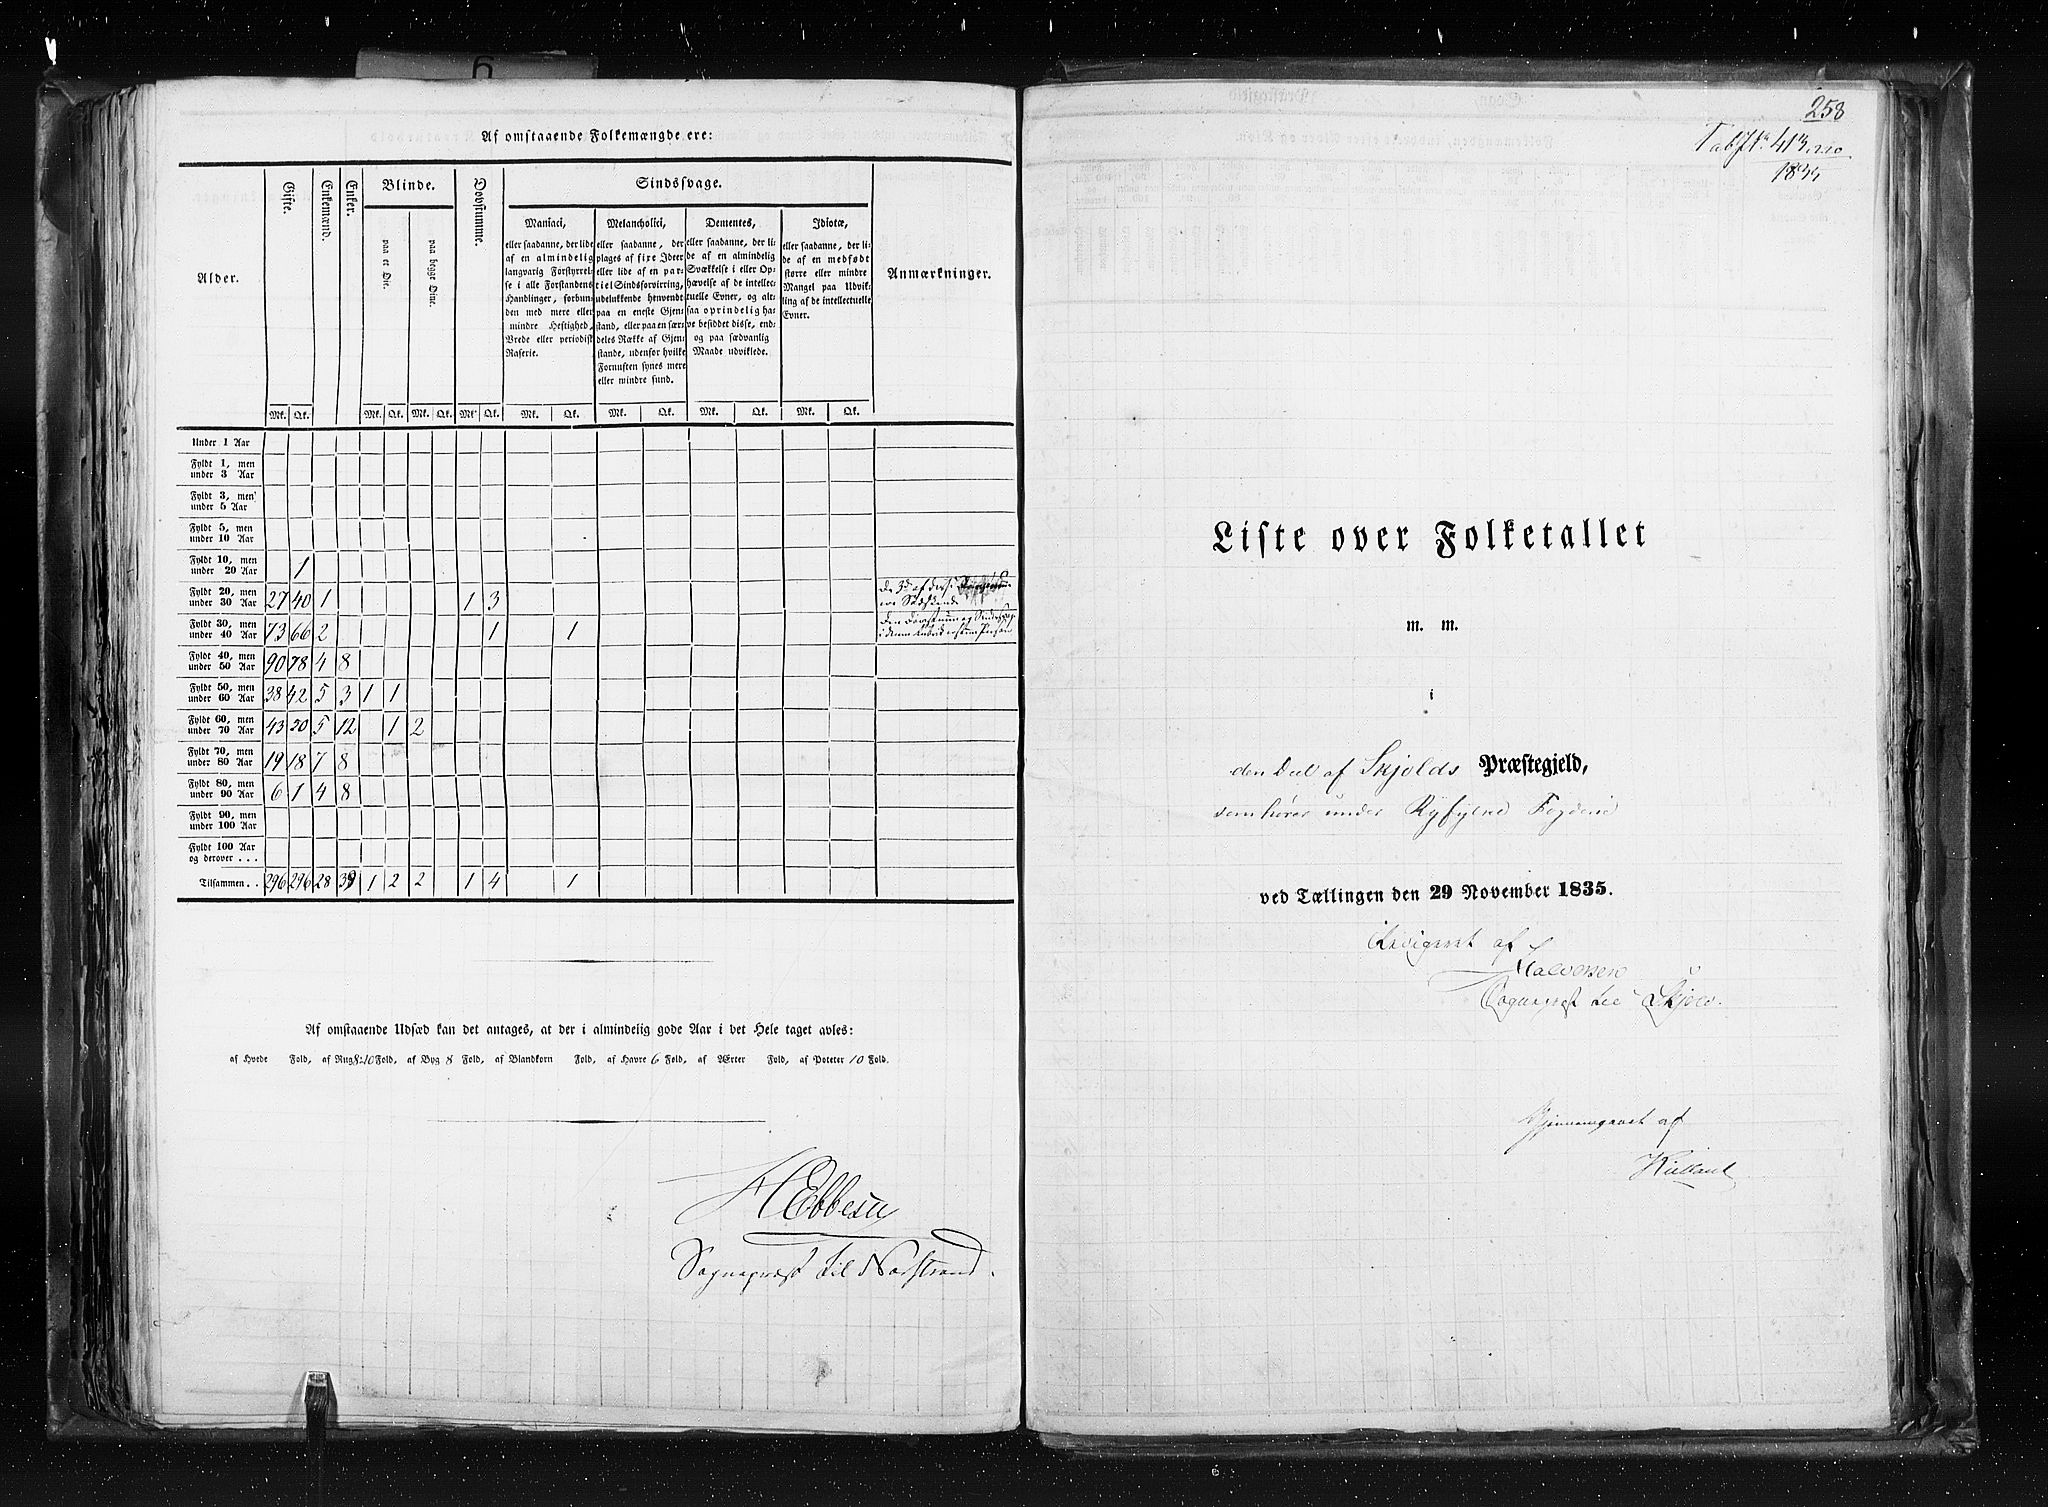 6
Af omstaaende Folkemængde ere:
Alder.
Gifte.
Enkemænd.
Enker.
Blinde.
paa et Øie.
paa begge Øine.
Døvstumme.
Sindssvage.
Maniaci,
eller saadanne, der lide
af en almindelig
langvarig Forstyrrel-
se i alle Forstandens
Handlinger, forbun-
den med mere eller
mindre Heftighed,
Vrede eller periodisk
Raserie.
Melancholici,
eller saadanne, der
plages af fixe Ideer
eller lide af en par-
tiel Sindsforvirring,
udelukkende henvendt
paa en eneste Gjen-
stand, eller paa en sær-
deles Række af Gjen-
stande, udenfor hvilke
Fornuften synes mere
eller mindre sund.
Dementes,
eller saadanne, der li-
de af en almindelig
Svækkelse i eller Op-
hævelse af de intellec-
tuelle Evner, og alt-
saa oprindelig ha-
ve besiddet disse, end-
og paa sædvanlig
Maade udviklede.
Idiotæ,
eller saadanne, der li-
de af en medfødt
større eller mindre
Mangel paa Udvik-
ling af de intellectuelle
Evner.
Anmærkninger.
Mk. Qk. Mk. Qk. Mk. Qk. Mk. Qk. Mk. Qk. Mk. Qk. Mk. Qk. Mk. Qk.
Under 1 Aar
Fyldt 1, men
under 3 Aar
Fyldt 3, men
under 5 Aar
Fyldt 5, men
under 10 Aar
Fyldt 10, men
under 20 Aar 1
Fyldt 20, men
under 30 Aar 27 40 1 1 3
Fyldt 30, men
under 40 Aar 73 66 2 1 1
Fyldt 40, men
under 50 Aar 90 78 4 8
Fyldt 50, men
under 60 Aar 38 42 5 3 1 1
Fyldt 60, men
under 70 Aar 43 50 5 12 1 2
Fyldt 70, men
under 80 Aar 19 18 7 8
Fyldt 80, men
under 90 Aar 6 1 4 8
Fyldt 90, men
under 100 Aar
Fyldt 100 Aar
og derover . . .
Tilsammen . . 296 296 28 39 1 2 2 1 4 1
Af omstaaende Udsæd kan det antages, at der i almindelig gode Aar i det Hele taget avles:
af Hvede Fold, af Rug 8-10 Fold, af Byg 8 Fold, af Blandkorn Fold, af Havre 6 Fold, af Ærter Fold, af Poteter 10 Fold.
HEbbesen
Sognepræst til Nærstrand.
258
413
1835
Liste over Folketallet
m. m.
i
den Deel af Skjolds Præstegjeld,
som hører under Ryfylke Fogderie
ved Tællingen den 29 November 1835.
af
Halvorsen
Sognepræst til Skjold.
Gjennemgaaet af
Kielland